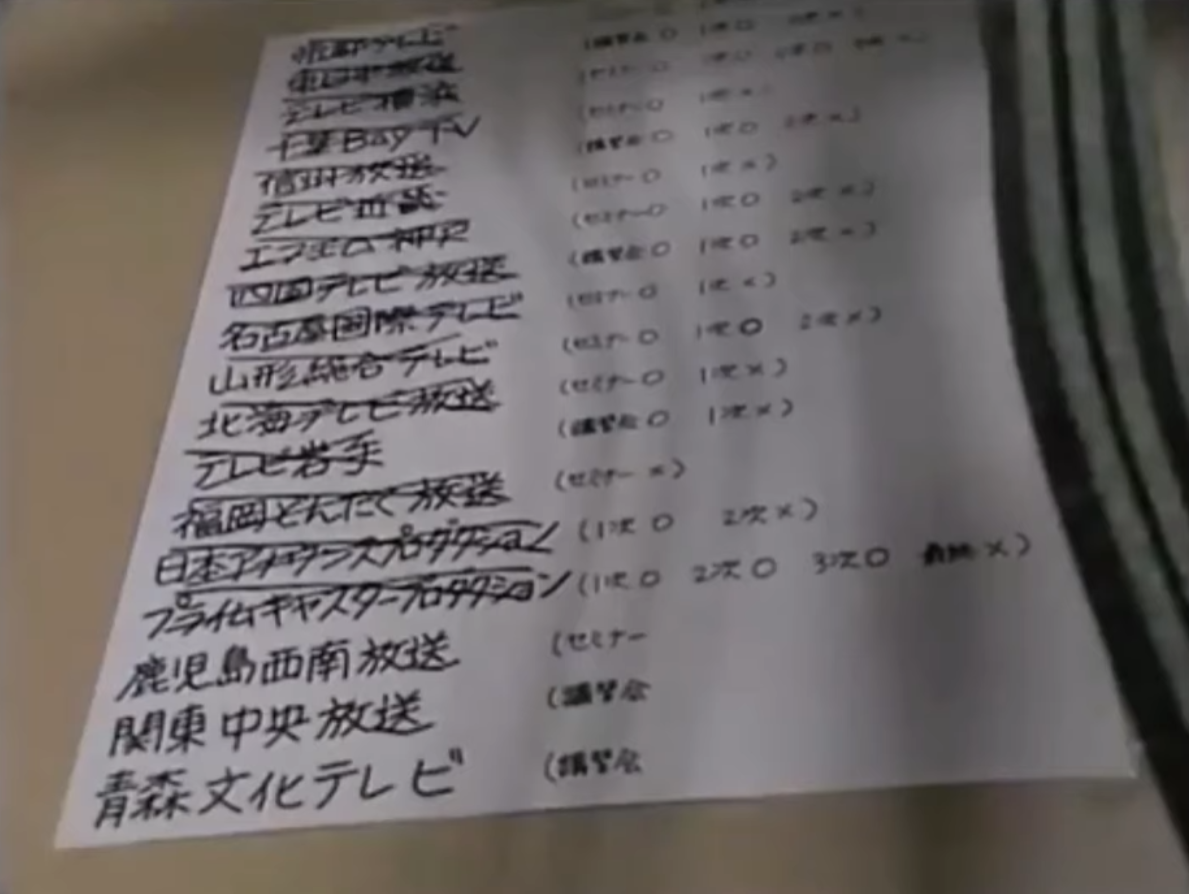 テレビ (講習会 ○ 1次○
放送 (セミナー ○ 1次○ 2次○
テレビ横浜 (セミナー ○ 1次 ×)
千葉Bay TV (講習会 ○ 1次○ 2次 ×)
信州放送 (セミナー ○ 1次 ×)
テレビ (セミナー ○ 1次○ 2次 ×)
エフエム神戸 (講習会 ○ 1次○ 2次 ×)
四国テレビ放送 (セミナー ○ 1次 ×)
名古屋国際テレビ (セミナー ○ 1次○ 2次 ×)
山形総合テレビ (セミナー ○ 1次 ×)
北海テレビ放送 (講習会 ○ 1次 ×)
テレビ岩手 (セミナー ×)
福岡どんたく放送 (1次 ○ 2次 ×)
日本アナウンスプロダクション (1次○ 2次○ 3次○ 最終 ×)
プライムキャスタープロダクション
鹿児島西南放送 (セミナー
関東中央放送 (講習会
青森文化テレビ (講習会